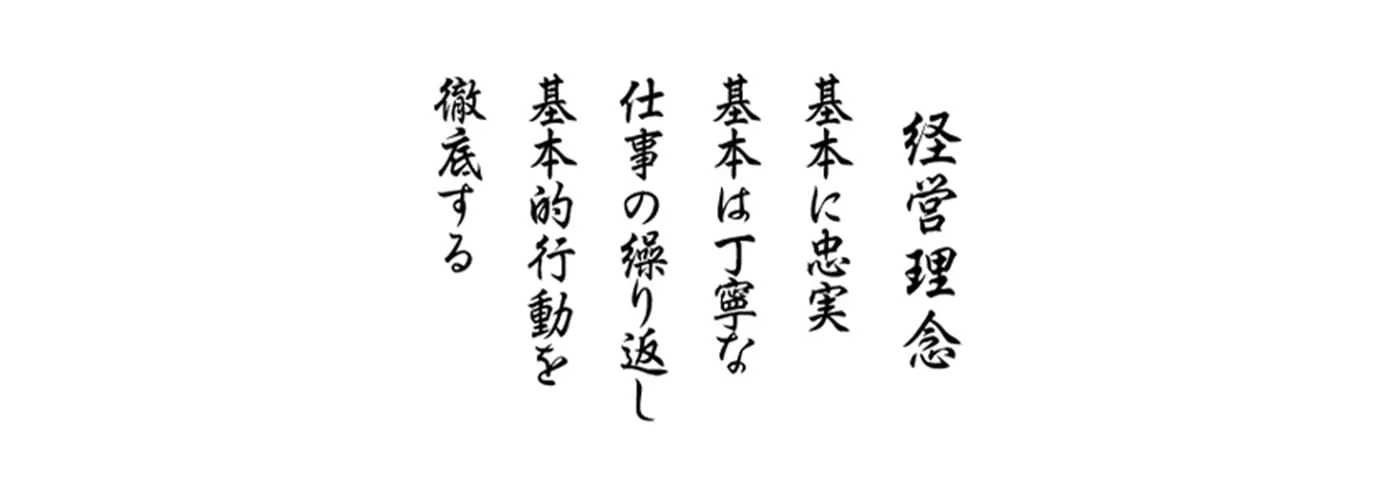 経営理念
基本に忠実
基本は丁寧な
仕事の繰り返し
基本的行動を
徹底する